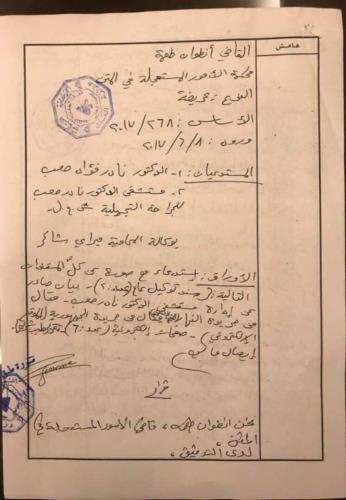 هامش
القاضي أنطوان طعمة
محكمة الأمور المستعجلة في المتن
النوع : عريضة
الأساس : ٢٦٨/٢٠١٧
ورود : ٢٠١٧/٦/٨
المستدعيان : ١- الدكتور نادر فؤاد صعب
٢- مستشفى الدكتور نادر صعب
للجراحة التجميلية ش.م.ل.
بوكالة المحامية ميراي شاكر
الأوراق : إستدعاء مع صورة عن كل المستندات
التالية : سند توكيل عام - بيان صادر
عن إدارة مستشفى الدكتور نادر صعب - مقال
في جريدة في جريدة الجمهورية
الإلكتروني - صفحات إلكترونية (عدد:٦)
إيصال مالي
قرار
نحن انطوان طعمه ، قاضي الامور المستعجلة في
المتن ،
لدى التدقيق ،